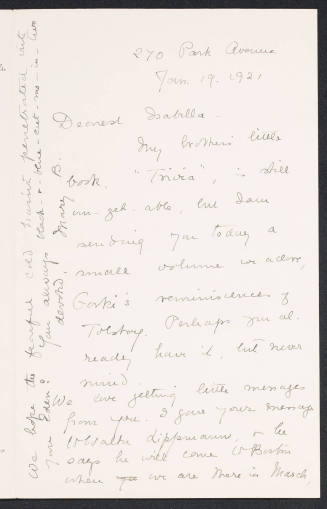 270 Park Avenue
Jan. 19. 1921
Dearest Isabella -
My brother's little
book, "Trivia", is still
un-get-able, but I am
sending you today a
small volume we adore,
Gorki's reminiscences of
Tolstoy. Perhaps you al-
ready have it, but never
mind.
We love getting little messages
from you. I gave your message
to Walter Lippmann, & he
says he will come to Boston
when we are there in March,
We hope the fearful cold hasn't penetrated into
your Eden? black-&-blue-cut-me-in-two
Your always
devoted,
Mary B.